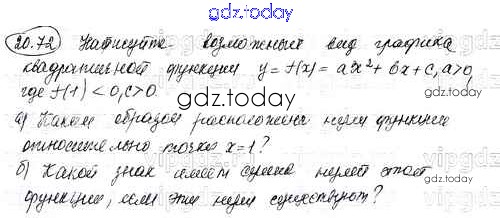 gdz.today
20.72 Нарисуйте возможный вид графика
квадратичной функции y = f(x) = ax² + bx + c, a>0,
где f(1) < 0, c>0.
gdz.today
а) Каким образом расположены нули функции
относительно точки x=1?
б) Какой знак имеет сумма нулей этой
функции, если эти нули существуют?
gdz.today